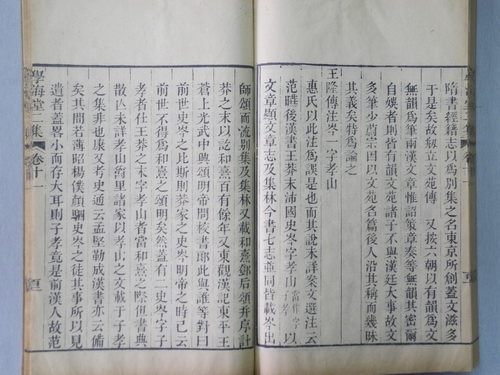 隋書經籍志以爲別集之名東京所創蓋文滋多
于是矣故立文苑傳 又按六朝以有韻爲文
無韻爲筆兩漢文章惟詔策章奏等無韻其密爾
自娛者則皆有韻文諸子不與漢廷大事故文
多筆少蔚宗因以文苑名篇後人沿其稱而幾昧
其義矣特爲論之
王隆傳注岑一字孝山
惠氏以此注爲誤是也而其說未詳案文選注云
范曄後漢書曰王莽末沛國史岑字孝山當作子孝以
文章顯文章志及集林今書七志並同皆載岑出
師頌而流別集及集林又載和熹鄧后頌并序計
莽之末以訖和熹百有餘年又東觀漢記東平王
蒼上光武中興頌明帝問校書郎此與誰等對曰
前世史岑之比斯則莽家之史岑明帝之時已云
前世不得爲和熹之頌明矣然蓋有二史岑字子
孝者仕王莽之末字孝山者當和熹之際但書典
散亡未詳孝山爵里諸家以孝山之文載于子孝
之集非也康又考史通云孟堅勒成漢書亦云備
矣其間若薄昭楊僕顔駟史岑之徒其事所以見
遺者蓋畧小而存大耳則子孝竟是前漢人故范
學海堂二集 卷十一